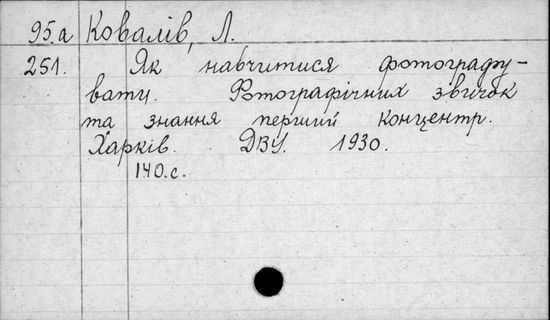 95.а Ковалів, Л.
251. Як навчитися фотографу-
вати. Фотографічних звичок
та знання перший концентр.
Харків. ДВУ. 1930.
140.с.